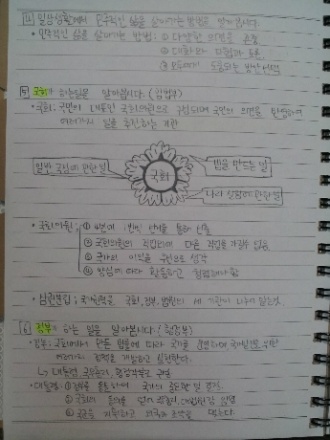 4 일상생활에서 민주적인 삶을 살아가는 방법을 알아봅시다.
• 민주적인 삶을 살아가는 방법: ① 다양한 의견을 존중
② 대화와 타협과 토론
③ 모두에게 도움되는 방안 선택
5 국회가 하는 일을 알아봅시다. (입법부)
• 국회: 국민의 대표인 국회의원으로 구성되며 국민의 의견을 반영하여
여러가지 일을 추진하는 기관
일반 국정에 관한 일
법을 만드는 일
국회
나라 살림에 관한 일
• 국회의원: ① 4년에 1번씩 선거를 통해 선출
② 국회의원의 직업외에 다른 직업을 가질수 없음
③ 국가의 이익을 우선으로 생각
④ 양심에 따라 활동하고 청렴해야함
• 삼권분립: 국가권력을 국회, 정부, 법원이 세 기관이 나누어 맡는것
6 정부가 하는 일을 알아봅시다. (행정부)
• 정부: 국회에서 만든 법률에 따라 국가를 운영하며 국가발전을 위한
여러가지 정책을 개발하고 실천한다.
↳ 대통령, 국무총리, 행정각부로 구분
• 대통령: ① 정부를 통솔하여 국가의 중요한 일 결정
② 국회의 동의를 얻어 국무총리, 대법원장 임명
③ 국군을 지휘하고 외국과 조약을 맺는다.